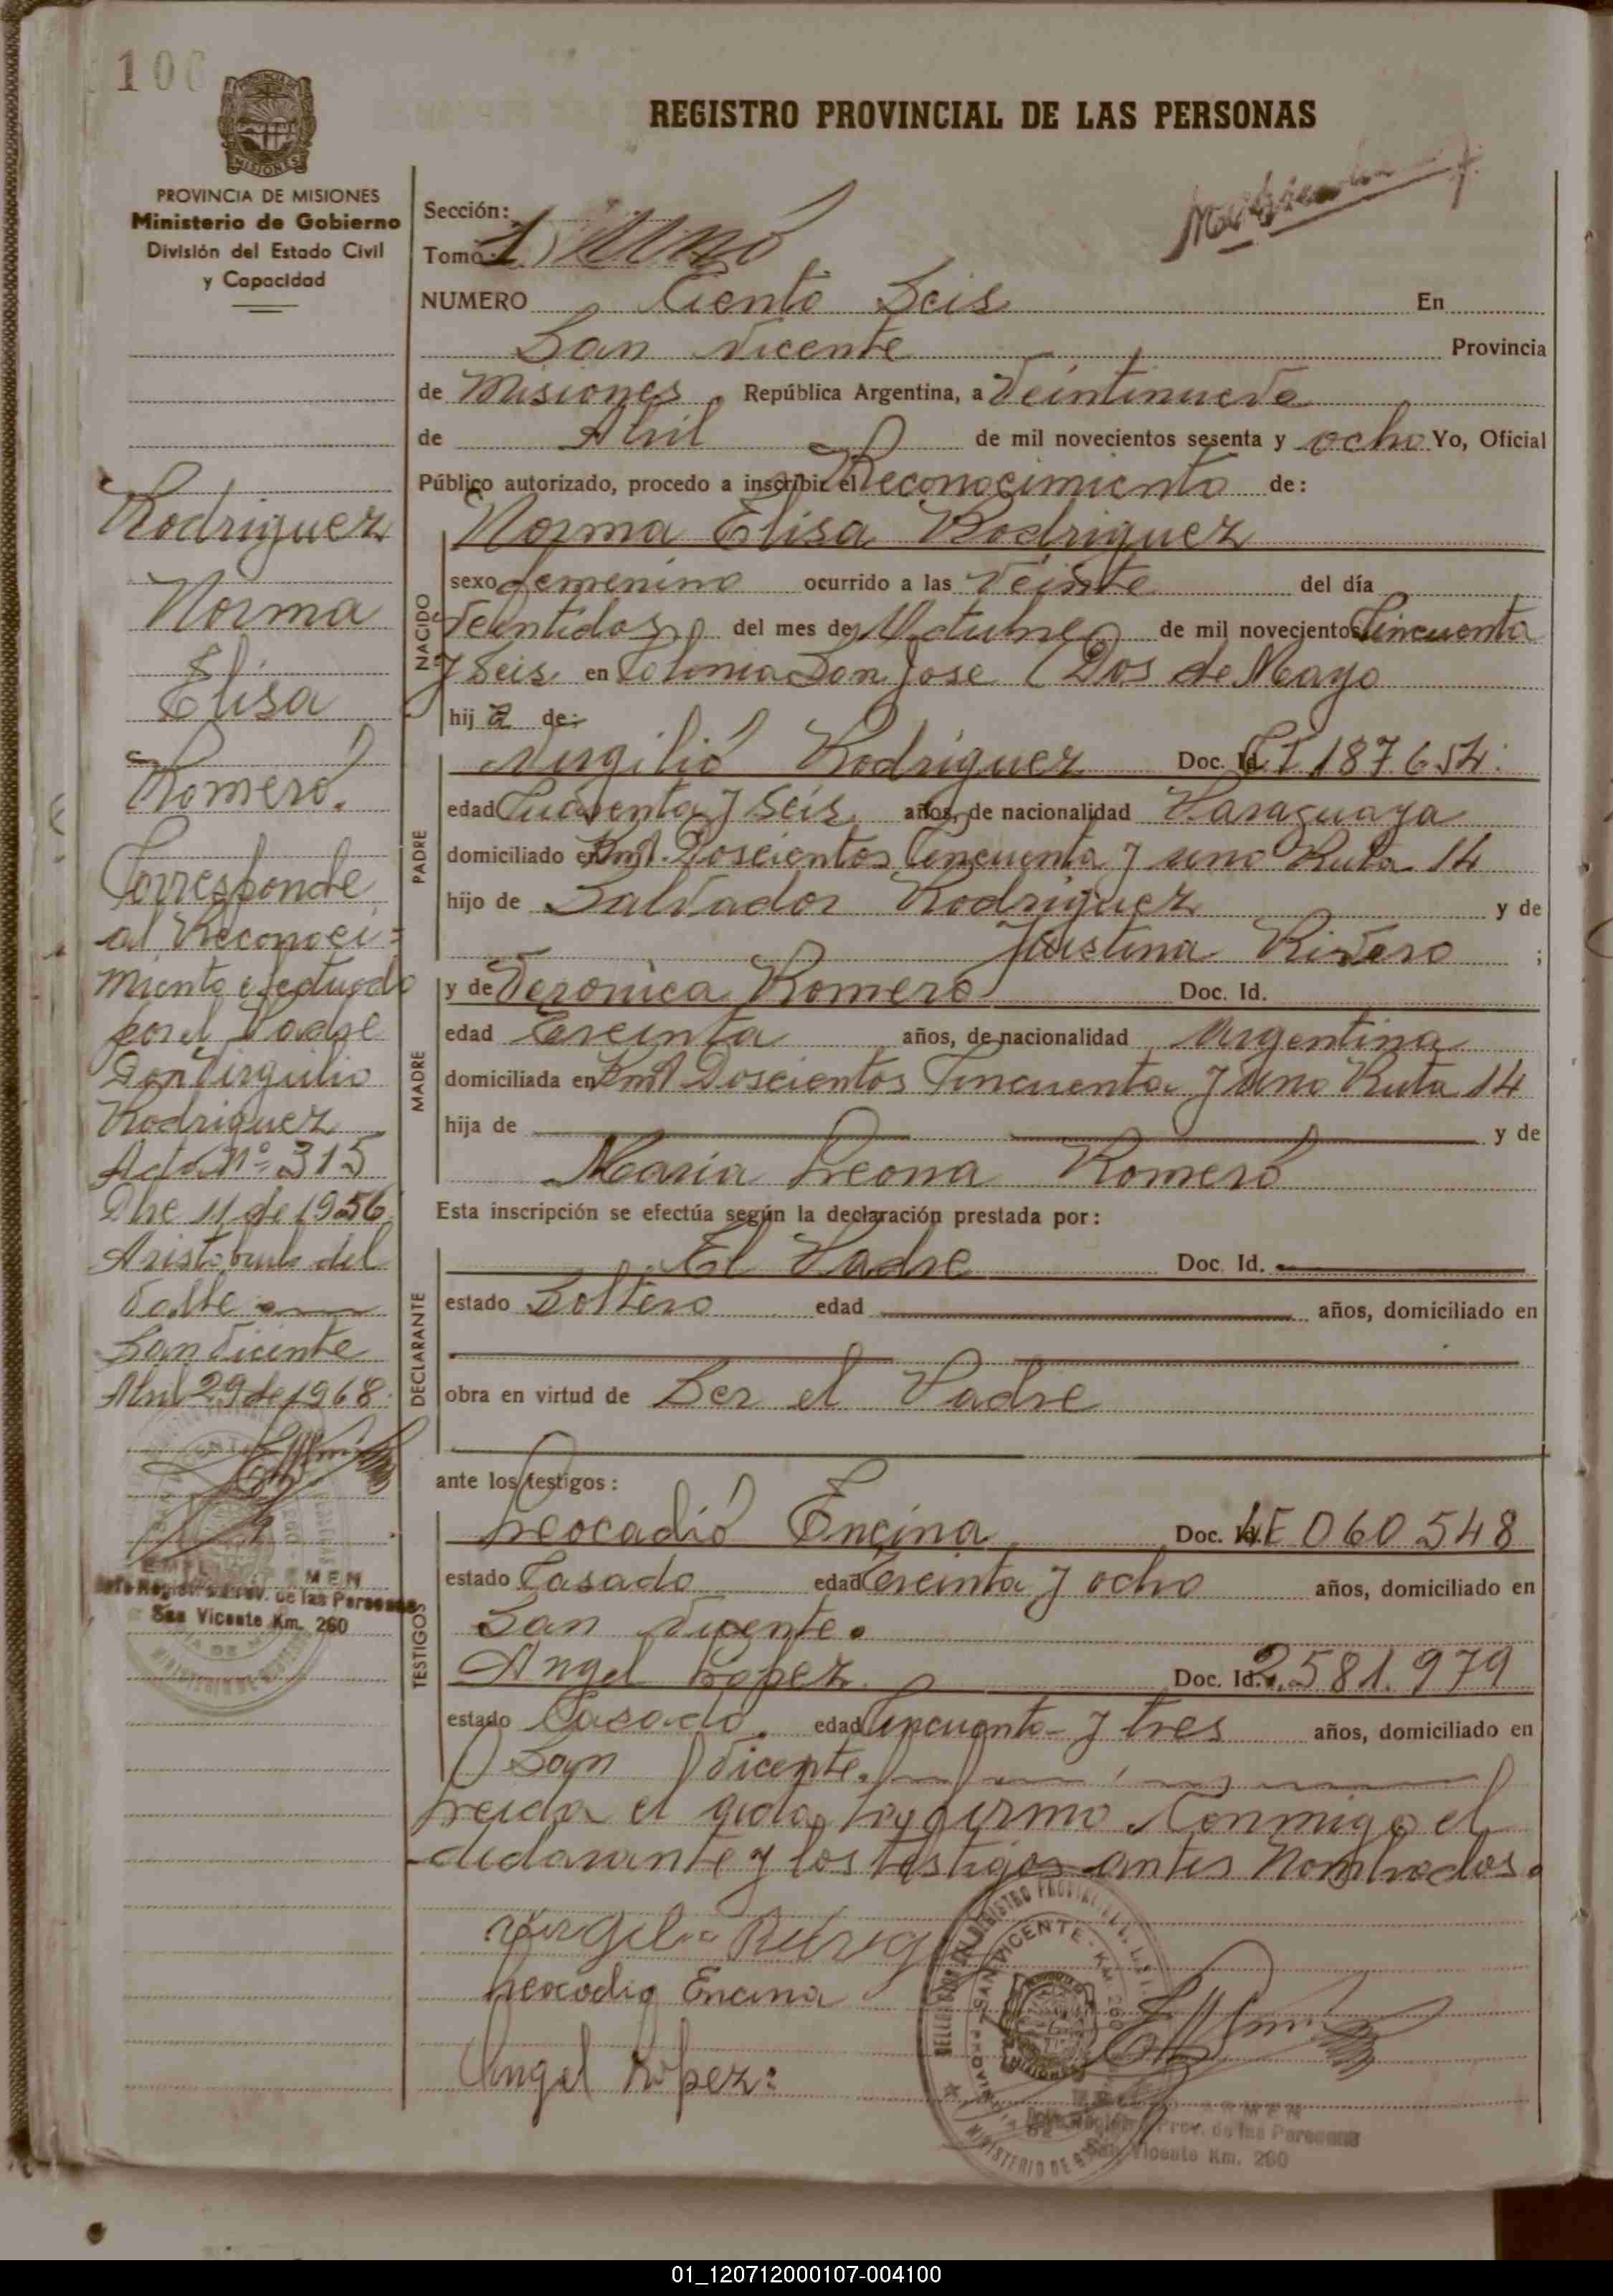 106
REGISTRO PROVINCIAL DE LAS PERSONAS
PROVINCIA DE MISIONES
Ministerio de Gobierno
División del Estado Civil
y Capacidad
Rodriguez
Norma
Elisa
Romero.
Corresponde
al Reconoci=
miento efectuado
por el Padre
Don Virgilio
Rodriguez
Acta Nº 315
Dbre 11 de 1956
Aristobulo del
Valle
San Vicente
Abril 29 de 1968.
Jefe Registro Prov. de las Personas
San Vicente Km. 260
Sección:
Tomo: 1) Uno
NUMERO Ciento Seis En
San Vicente Provincia
de Misiones, República Argentina, a Veintinueve
de Abril de mil novecientos sesenta y ocho Yo, Oficial
Público autorizado, procedo a inscribir el Reconocimiento de:
NACIDO
Norma Elisa Rodriguez
sexo femenino ocurrido a las Veinte del día
Veintidos del mes de Octubre de mil novecientos Cincuenta
y Seis en Colonia San Jose (Dos de Mayo
hij a de:
PADRE
Virgilio Rodriguez Doc. Id. CI 187654.
edad Cuarenta y Seis años, de nacionalidad Paraguaya
domiciliado en Kmt. Doscientos Cincuenta y uno Ruta 14
hijo de Salvador Rodriguez y de
Justina Rivero ;
MADRE
y de Veronica Romero Doc. Id.
edad Treinta años, de nacionalidad Argentina
domiciliada en Kmt Doscientos Cincuenta y Uno Ruta 14
hija de y de
Maria Leona Romero
Esta inscripción se efectúa según la declaración prestada por:
DECLARANTE
El Padre Doc. Id.
estado Soltero edad años, domiciliado en
obra en virtud de Ser el Padre
ante los testigos:
TESTIGOS
Leocadio Encina Doc. Id. LE 060548
estado Casado edad Treinta y ocho años, domiciliado en
San Vicente.
Angel Lopez Doc. Id. 2.581.979
estado Casado. edad Cincuenta y tres años, domiciliado en
San Vicente.
Leida el acta, la firmo Conmigo el
declarante y los testigos antes Nombrados.
Leocadio Encina
Angel Lopez:
SAN VICENTE - KM 260
Jefe Registro Prov. de las Personas
San Vicente Km. 260
01_120712000107-004100